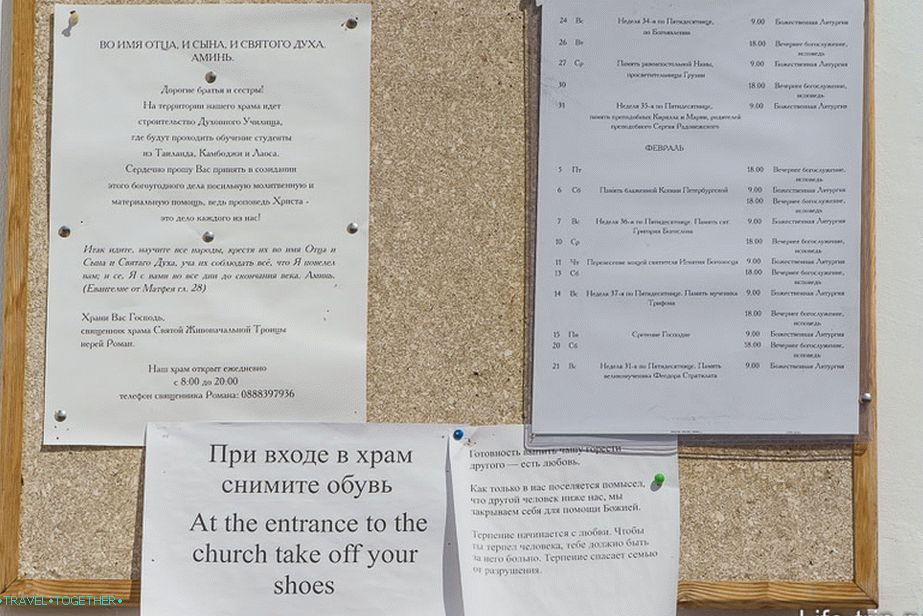 ВО ИМЯ ОТЦА, И СЫНА, И СВЯТОГО ДУХА.
АМИНЬ.
Дорогие братья и сестры!
На территории нашего храма идет
строительство Духовного Училища,
где будут проходить обучение студенты
из Таиланда, Камбоджи и Лаоса.
Сердечно прошу Вас принять в созидании
этого богоугодного дела посильную молитвенную и
материальную помощь, ведь проповедь Христа -
это дело каждого из нас!
Итак идите, научите все народы, крестя их во имя Отца и
Сына и Святаго Духа, уча их соблюдать всё, что Я повелел
вам; и се, Я с вами во все дни до скончания века. Аминь.
(Евангелие от Матфея гл. 28)
Храни Вас Господь,
священник храма Святой Живоначальной Троицы
иерей Роман.
Наш храм открыт ежедневно
с 8:00 до 20.00
телефон священника Романа: 0888397936
24 Вс Неделя 34-я по Пятидесятнице, 9.00 Божественная Литургия
по Богоявлении
26 Вт 18.00 Вечернее богослужение,
исповедь
27 Ср Память равноапостольной Нины, 9.00 Божественная Литургия
просветительницы Грузии
30 18.00 Вечернее богослужение,
исповедь
31 Неделя 35-я по Пятидесятнице, 9.00 Божественная Литургия
память преподобных Кирилла и Марии, родителей
преподобного Сергия Радонежского
ФЕВРАЛЬ
5 Пт 18.00 Вечернее богослужение,
исповедь
6 Сб Память блаженной Ксении Петербургской 9.00 Божественная Литургия
18.00 Вечернее богослужение,
исповедь
7 Вс Неделя 36-я по Пятидесятнице. Память свт. 9.00 Божественная Литургия
Григория Богослова
10 Ср 18.00 Вечернее богослужение,
исповедь
11 Чт Перенесение мощей святителя Игнатия Богоносца 9.00 Божественная Литургия
13 Сб 18.00 Вечернее богослужение,
исповедь
14 Вс Неделя 37-я по Пятидесятнице. Память мученика 9.00 Божественная Литургия
Трифона
18.00 Вечернее богослужение,
исповедь
15 Пн Сретение Господне 9.00 Божественная Литургия
20 Сб 18.00 Вечернее богослужение,
исповедь
21 Вс Неделя 31-я по Пятидесятнице. Память 9.00 Божественная Литургия
великомученика Феодора Стратилата
При входе в храм
снимите обувь
At the entrance to the
church take off your
shoes
Готовность выпить чашу горести
другого — есть любовь.
Как только в нас поселяется помысел,
что другой человек ниже нас, мы
закрываем себя для помощи Божией.
Терпение начинается с любви. Чтобы
ты терпел человека, тебе должно быть
за него больно. Терпение спасает семью
от разрушения.
•TRAVEL•TOGETHER•